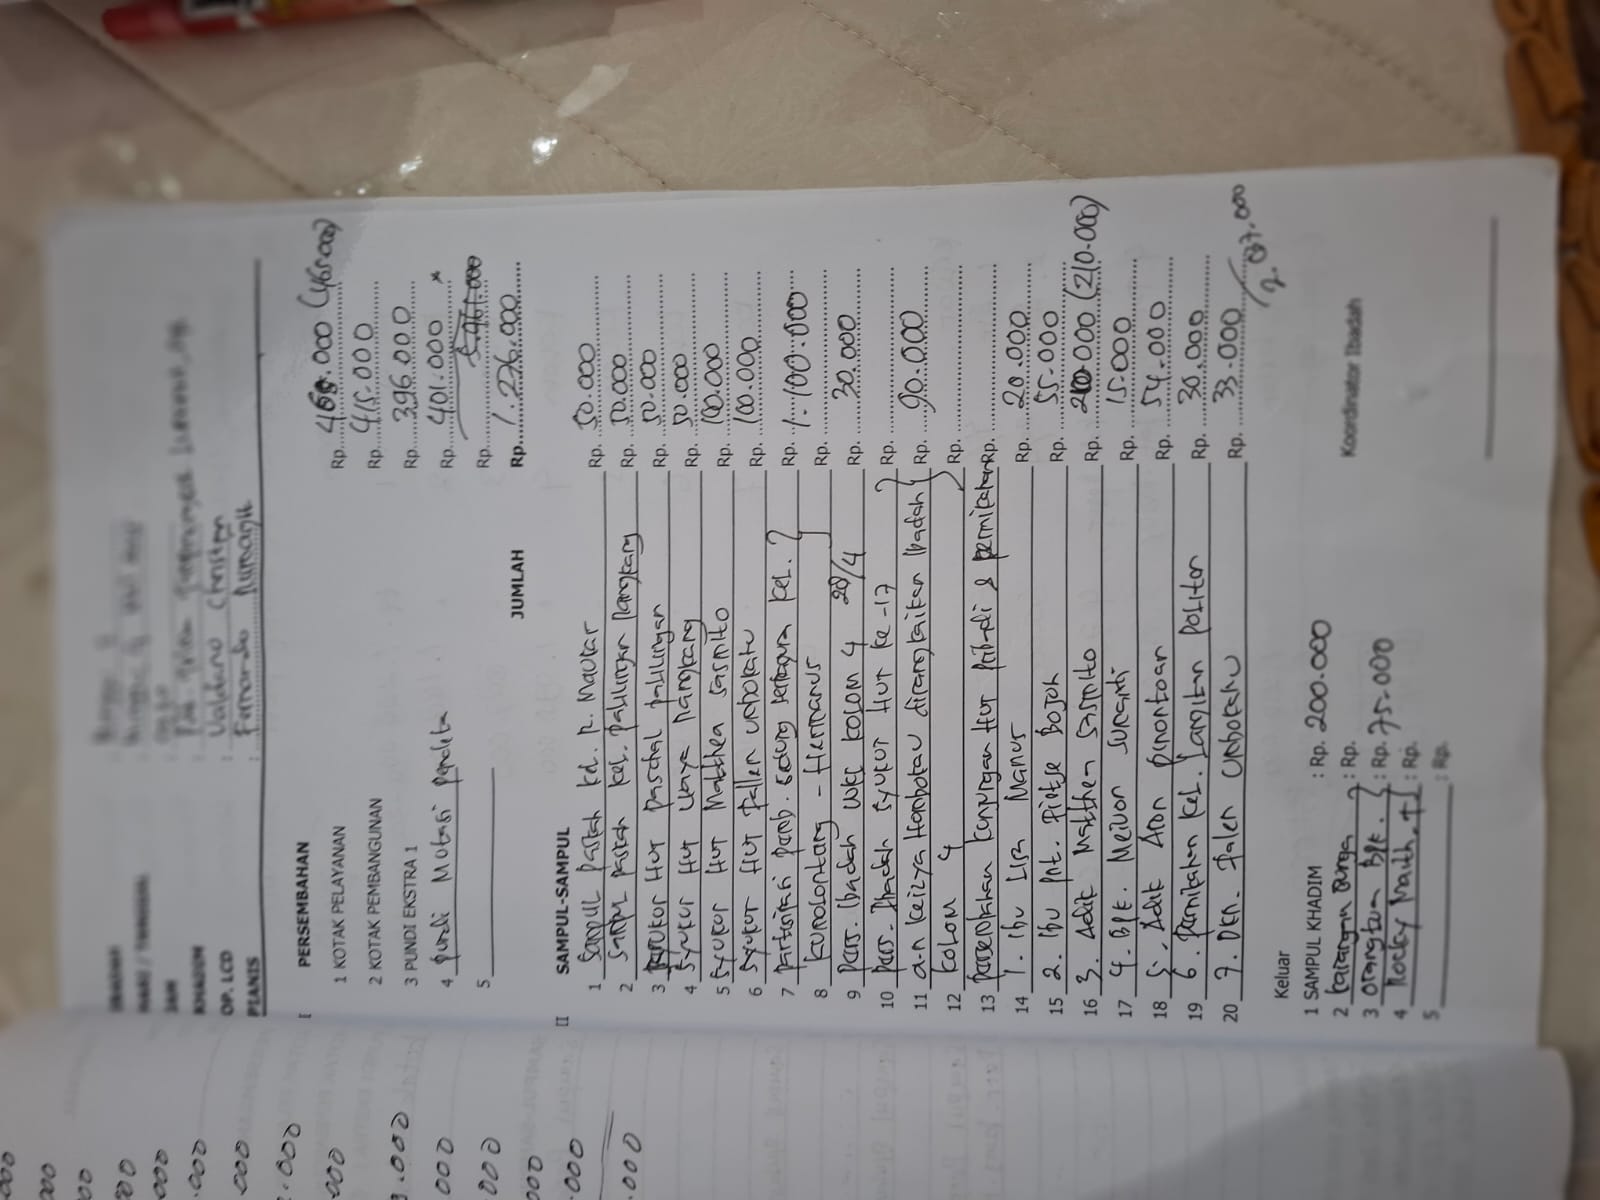 000
000
00
00
000
.000
.000
.000
000
.000
000
000
000
.000
.000
IBADAH :
HARI / TANGGAL :
JAM :
KHADIM : Pdt.
OP. LCD : Valdano Christen
PIANIS : Fernando Rumangit
I PERSEMBAHAN
1 KOTAK PELAYANAN Rp. 465.000 (465.000)
2 KOTAK PEMBANGUNAN Rp. 415.000
3 PUNDI EKSTRA 1 Rp. 396.000
4 pundi Mutasi pendeta Rp. 401.000 *
5 Rp.
JUMLAH Rp. 1.276.000
II SAMPUL-SAMPUL
1 Sampul paskah Kel. R. Mautar Rp. 50.000
2 Sampul paskah Kel. palilingan Nangkang Rp. 50.000
3 syukur HUT paschal palilingan Rp. 50.000
4 syukur HUT Nangkang Rp. 50.000
5 syukur HUT Matthea Sasmito Rp. 100.000
6 syukur HUT fallen umbokahu Rp. 100.000
7 partisipasi pemb. gedung serbaguna Kel. Rp. 1.100.000
8 Kumolontang - Hermanus Rp.
9 pers. Ibadah WKI KOLOM 4 28/4 Rp. 30.000
10 pers. Ibadah syukur HUT ke -17 Rp.
11 a.n Keizya Hombokau dirangkaikan Ibadah Rp. 90.000
12 KOLOM 4 Rp.
13 persembahan kunjungan HUT pribadi & pernikahan Rp.
14 1. Ibu Lisa Manus Rp. 20.000
15 2. Ibu pnt. Fietse Bojoh Rp. 55.000
16 3. Adik Matthea Sasmito Rp. 210.000 (210.000)
17 4. Bpk. Meivon Sumanti Rp. 15.000
18 5. Adik Aron pinontoan Rp. 54.000
19 6. pernikahan Kel. Langitan Politon Rp. 30.000
20 7. Dkn. falen umbokahu Rp. 33.000
2.037.000
Keluar
1 SAMPUL KHADIM : Rp. 200.000
2 karangan Bunga : Rp.
3 orangtua Bpk. : Rp. 75.000
4 Rocky + : Rp.
5 : Rp.
Koordinator Ibadah